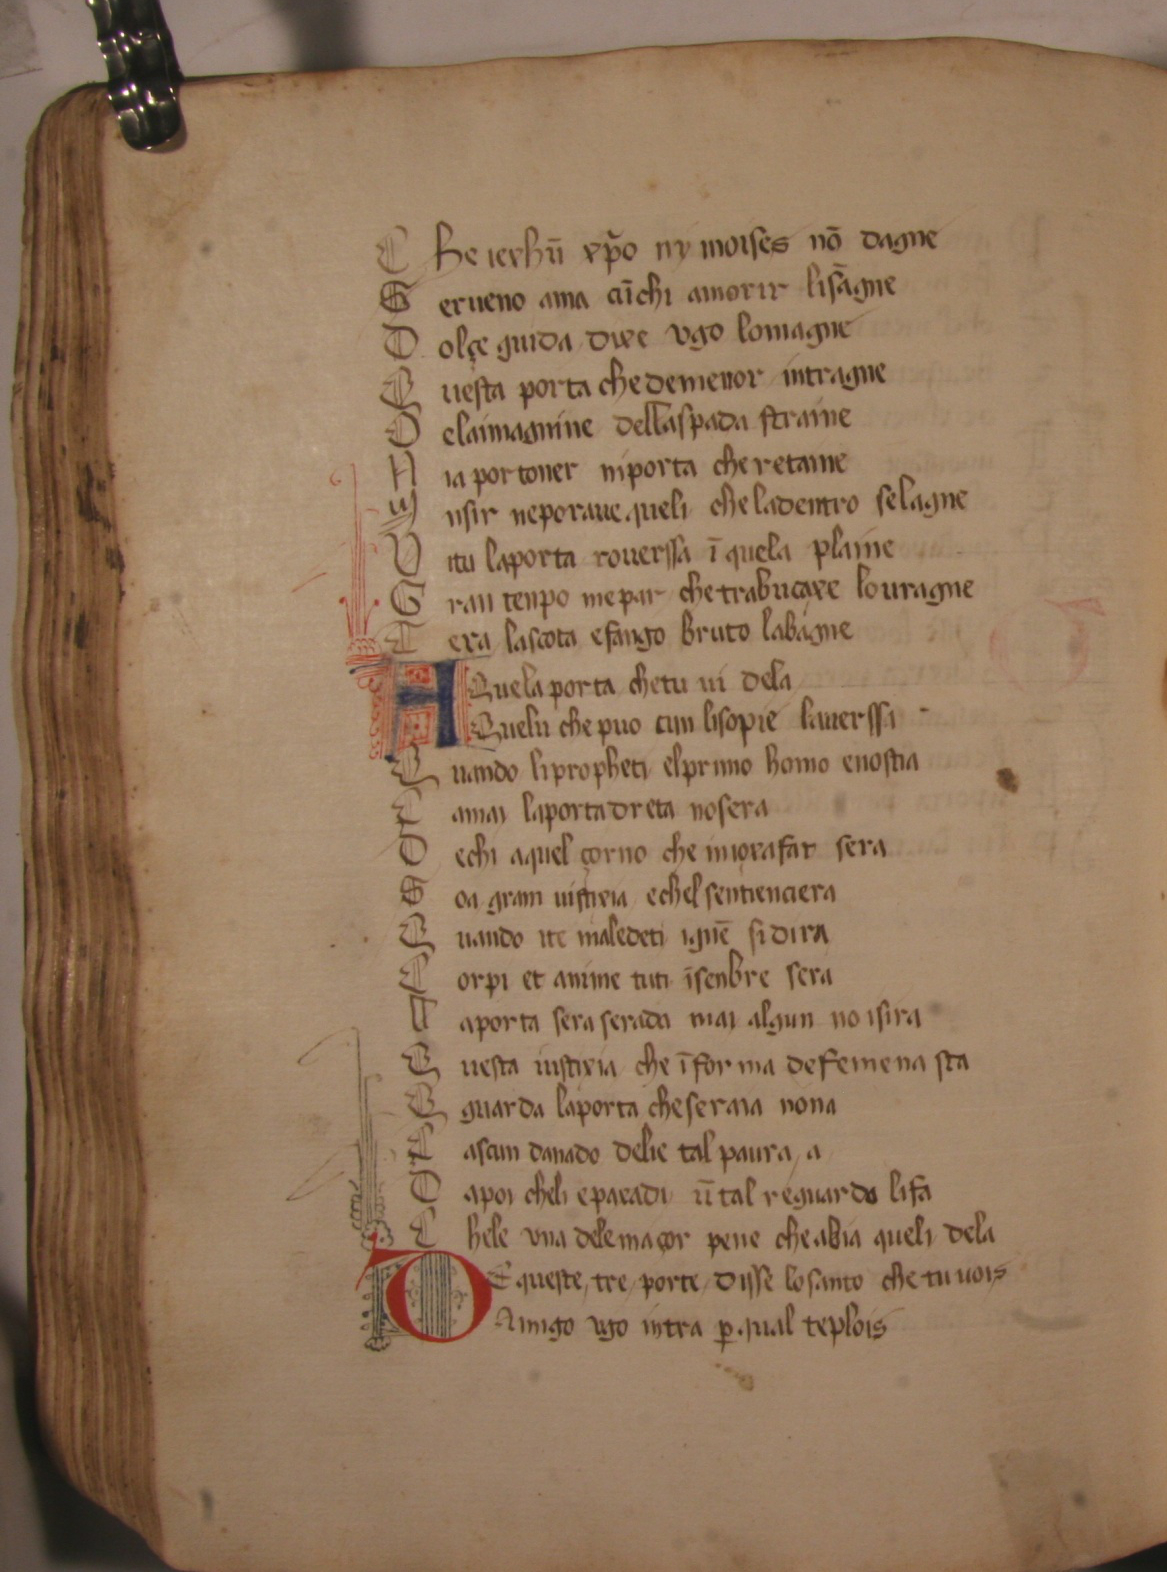 C he iexhū xp̄o ny moises nō dagne
S erueno ama cūchi amorir lisāgne
D olçe guida dixe vgo lomagne
Q uesta porta che demenor intragne
D elaimagnine dellaspada straine
N ia portoner niporta che retaine
M usir neporaue queli che ladentro selagne
V itu laporta rouerssa ī quela plaine
G ran tenpo mepar che trabucaxe louragne
T exa lascota efango bruto labagne
A Quela porta chetu ui dela
Quelu che puo cun lisopie lauerssa
Q uando lipropheti elprimo homo enostia
C amai laporta dreta nosera
D echi aquel çorno che iniorafat sera
S oa gram uistixia echel sentienciera
Q uando ite maledeti ignē si dira
C orpi et anime tuti īsenbre sera
L aporta sera serada mai algun no isira
Q uesta iustixia che īforma defemena sta
E guarda laporta cheseraia nona
C ascun danado delie tal paura a
D apoi cheli eparadi ū tal reguardo lifa
C hele vna dele maçor pene che abia queli dela
D E queste tre porte disse losanto che tu uois
Amigo vgo intra p̱ qual teplois